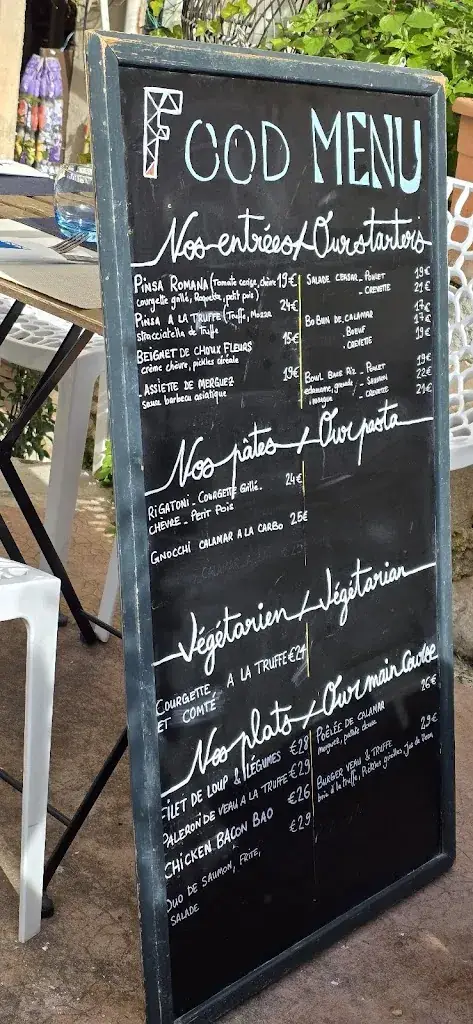 FOOD MENU
Nos entrées / Our starters
PINSA ROMANA (Tomate cerise, chèvre 19€
courgette grillé, Roquette, petit pois)
PINSA A LA TRUFFE (Truffe, Mozza 24€
stracciatella de truffe
BEIGNET DE CHOUX FLEURS 15€
crème chèvre, pickles céréale
ASSIETTE DE MERGUEZ 19€
sauce barbecu asiatique
SALADE CEASAR - POULET 19€
- CREVETTE 21€
BO BUN DE CALAMAR 17€
- BOEUF 17€
- CREVETTE 19€
BOWL BASE RIZ - POULET 19€
edamame, grenade - SAUMON 22€
mangue - CREVETTE 21€
Nos pâtes / Our pasta
RIGATONI - COURGETTE Grillé - 24€
CHÈVRE - Petit Pois
GNOCCHI CALAMAR A LA CARBO 25€
Végétarien / Végétarian
COURGETTE A LA TRUFFE €24
ET COMTÉ
Nos plats / Our main course
FILET DE LOUP & LÉGUMES €28
PALERON DE VEAU A LA TRUFFE €29
CHICKEN BACON BAO €26
DUO DE SAUMON, FRITE, €29
SALADE
POÊLÉE DE CALAMAR 26€
douce
BURGER VEAU & TRUFFE 29€
brie à la truffe, Pickles